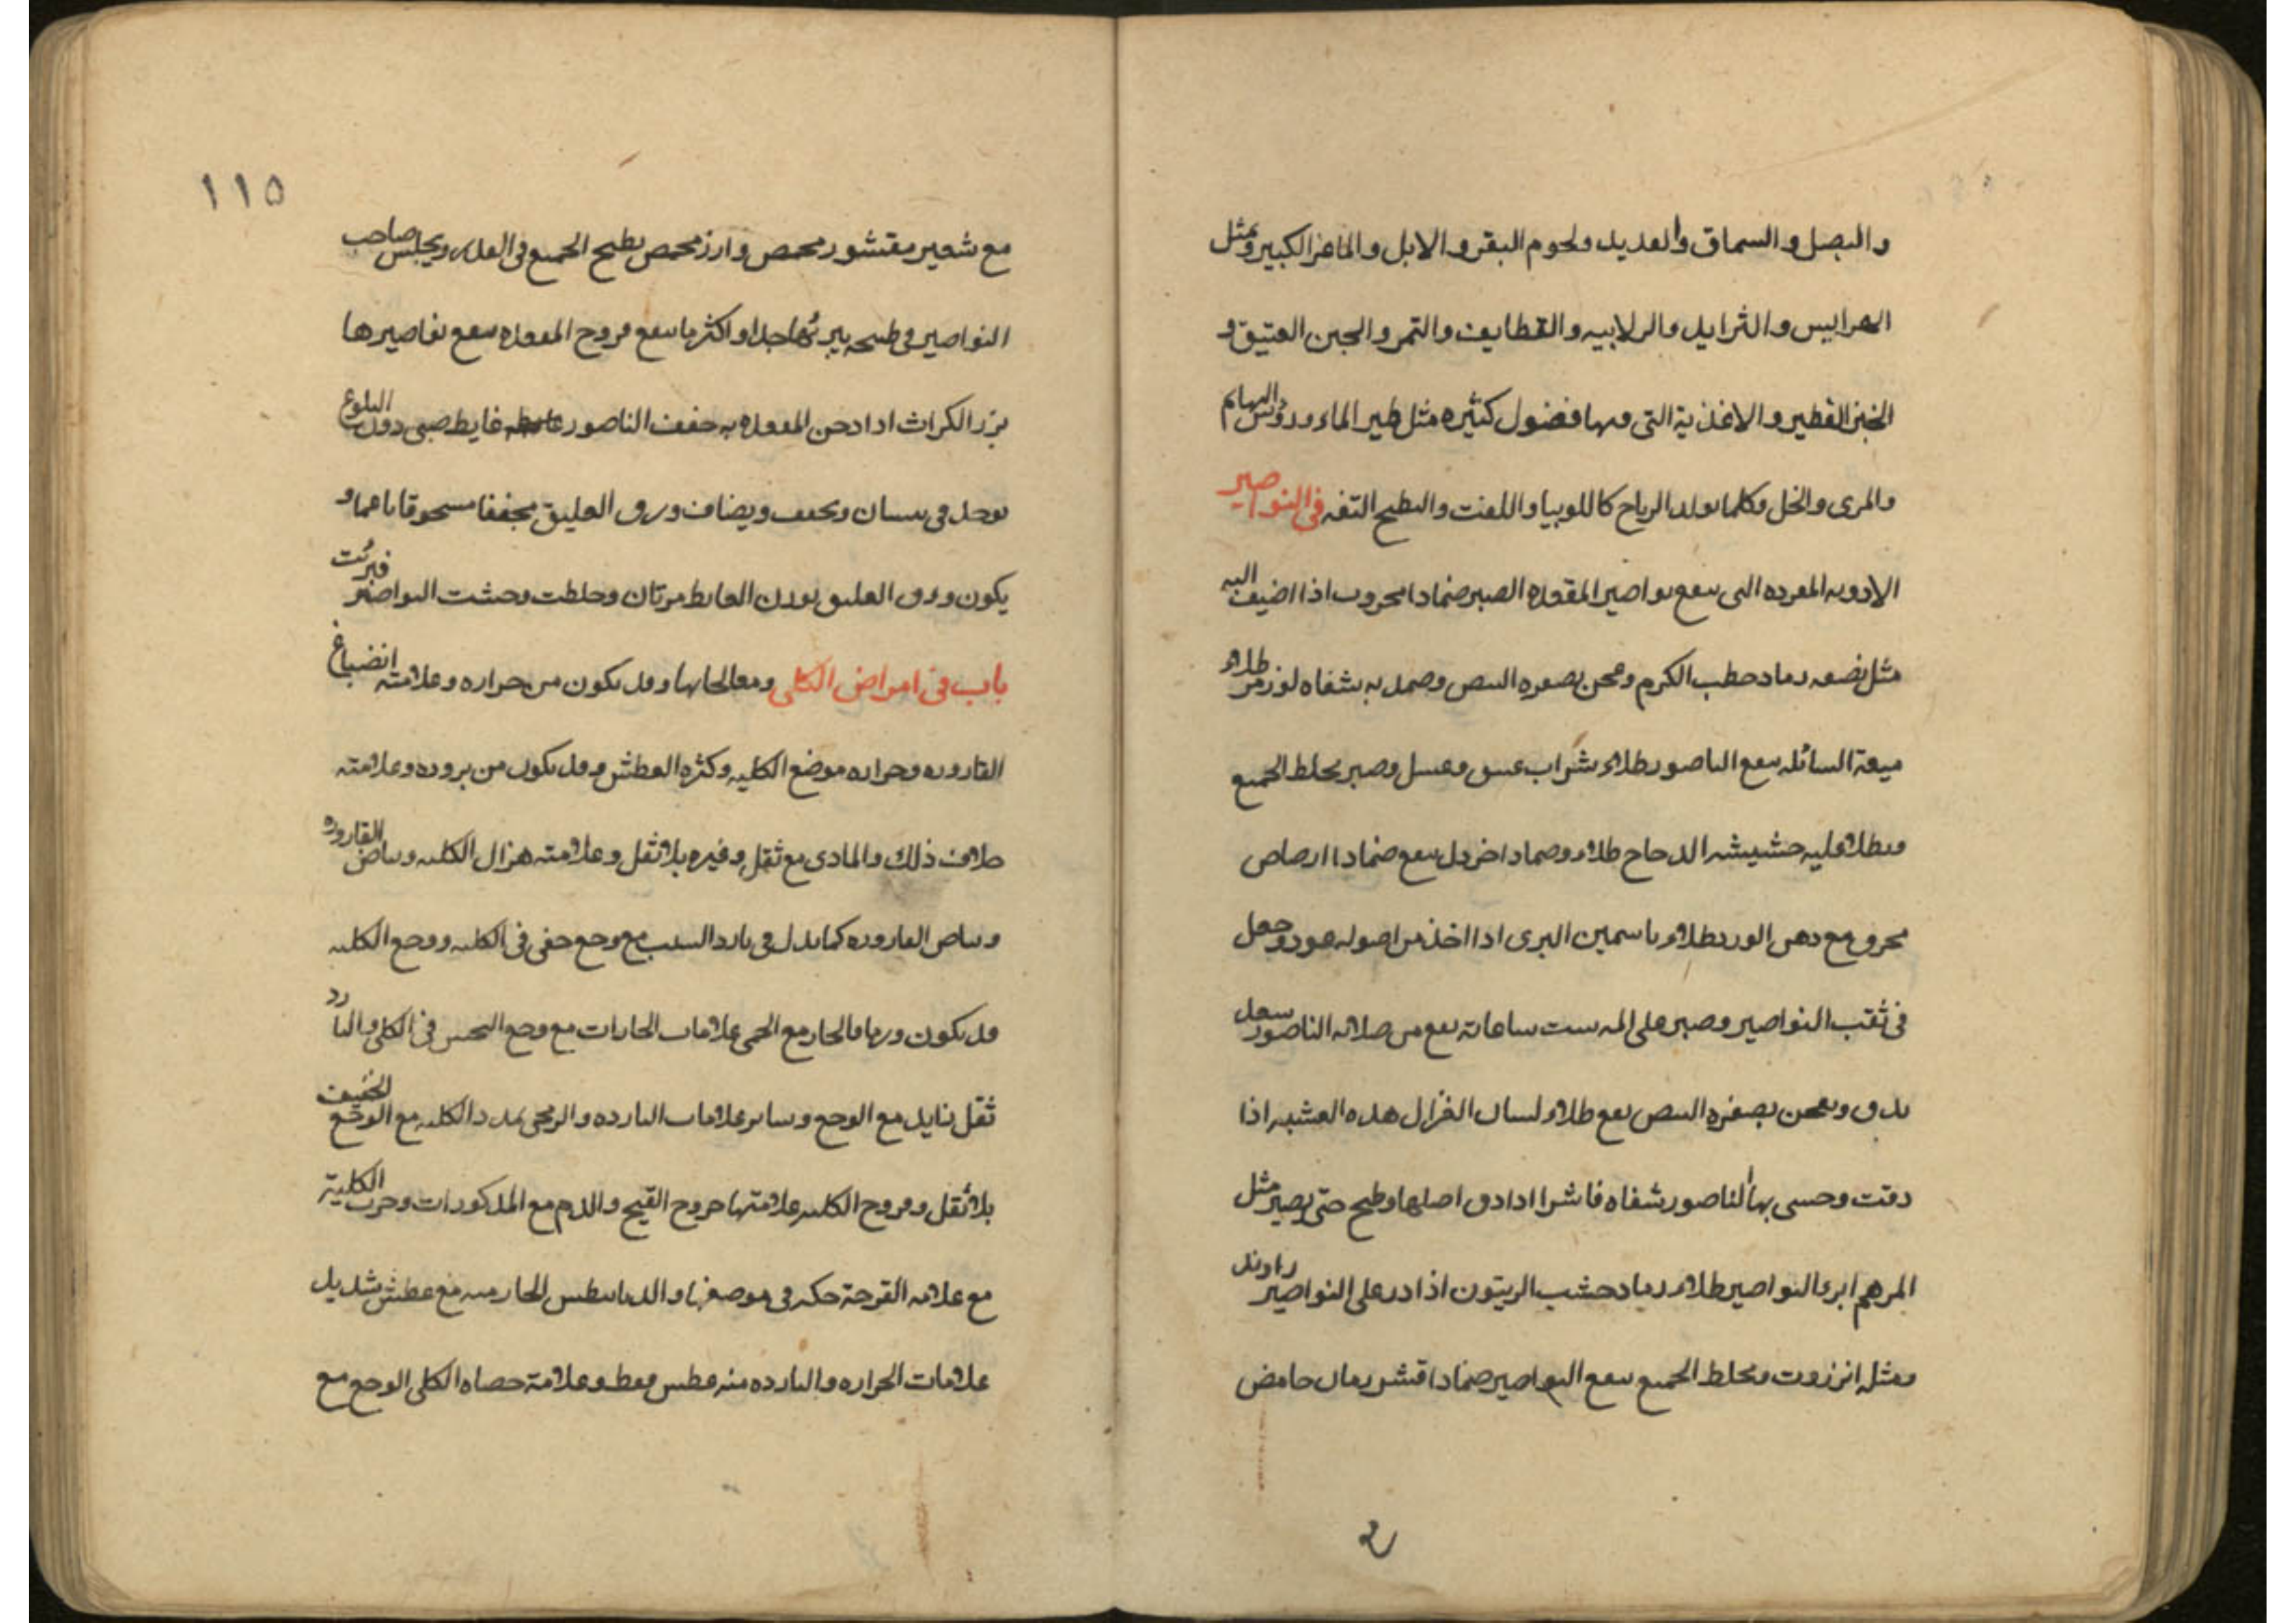 والبصل والسماق والقديد ولحوم البقر والابل والماعز الكبير ومثل
الهرايس والثرايد والزلابيه والقطايف والتمر والجبن العتيق و
الخبز الفطير والاغذية التي فيها فضول كثيره مثل طير الماء وروس البهايم
والمرى والخل وكلما يولد الرياح كاللوبيا واللفت والبطيخ التفه في النواصير
الادويه المفرده التى ينفع نواصير المقعده الصبر ضمادا مجروب اذا اضيف اليه
مثل نصفه رماد حطب الكرم وعجن بصفره البيض وضمد به شفاه لوز مر طلاء
ميعة السائله ينفع الناصور طلاء بشراب عتيق وعسل وصبر يخلط الجميع
ويطلا عليه حشيشه الدجاج طلاء وضمادا خردل ينفع ضمادا ارصاص
محروق مع دهن الورد طلاء ياسمين البرى اذا اخذ من اصوله عود وجعل
في ثقب النواصير وصبر على الم ست ساعات نفع من صلابه الناصور سعد
يدق ويعجن بصفره البيض نفع طلاء لسان الغزال هذه العشبه اذا
دقت وحسى بها الناصور شفاه فاشرا اذا دق اصلها وطبخ حتى يصير مثل
المرهم ابرئ النواصير طلاء رماد خشب الزيتون اذا ذر على النواصير راوند
ومثله انزروت ويخلط الجميع ينفع النواصير ضمادا قشر رمان حامض
٢
١١٥
مع شعير مقشور محمص وارز محمص يطبخ الجميع في القدر ويجلس صاحب
النواصير في طبيخه يبرئها جدا واكثر ما ينفع قروح المقعده ينفع نواصيرها
بزر الكراث اذا دخن المقعده به جفف الناصور غايط صبى دون البلوغ
يوخذ في نيسان ويجفف ويضاف ورق العليق مجففا مسحوقا ناعما و
يكون ورق العليق بوزن الغايط مرتان وخلطت وحشت النواصير فبرئت
باب فى امراض الكلى ومعالجاتها وقد يكون من حراره وعلامته انصباغ
القاروره وحراره موضع الكليه وكثره العطش وقد يكون من بروده وعلامته
خلاف ذلك والمادى مع ثقل وغيره بلا ثقل وعلامته هزال الكليه وبياض القاروره
وبياض القاروره كما يدل في بارد السبب مع وجع خفى في الكليه ووجع الكليه
قد يكون ورما فالحار مع الحمى علامات الحارات مع وجع النخس في الكلى والبارد
ثقل زايد مع الوجع وساير علامات البارده والريحى تمدد الكليه مع الوجع الخفيف
بلا ثقل وقروح الكليه علامتها خروج القيح والدم مع المذكورات وجرب الكلية
مع علامه القرحة حكه في موضعها والديابيطس الحار منه مع عطش شديد
علامات الحراره والبارده منه عطش فقط وعلامة حصاه الكلى الوجع مع